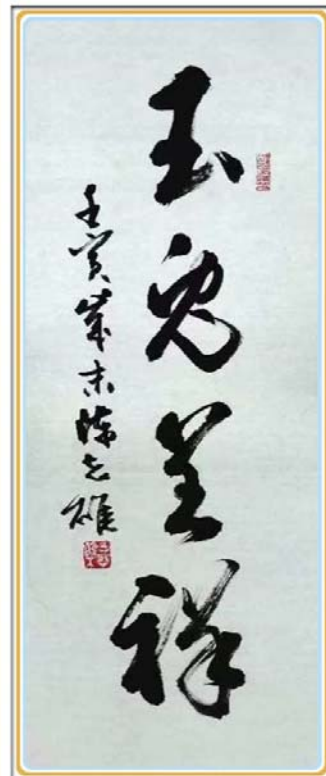 玉兔呈祥
壬寅岁末陈志雄